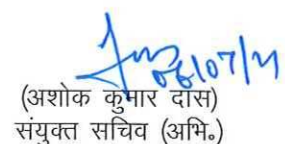 06/07/21
(अशोक कुमार दास)
संयुक्त सचिव (अभि॰)